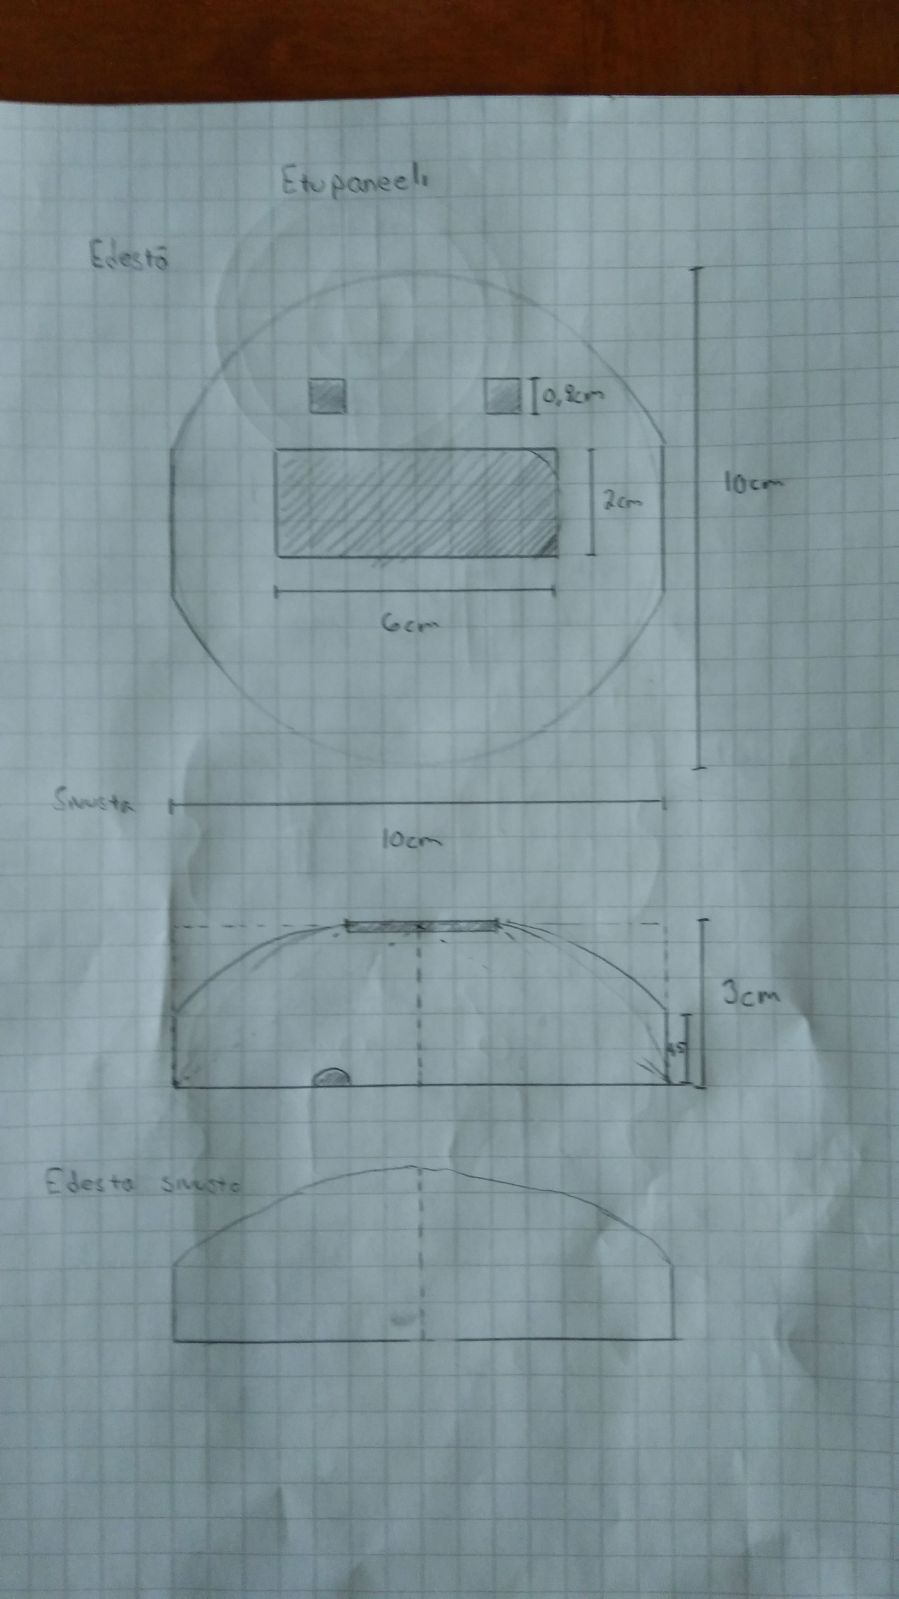 Etupaneeli
Edestä
0,8cm
2cm
10cm
6cm
Sivusta
10cm
3cm
Edestä sivusta